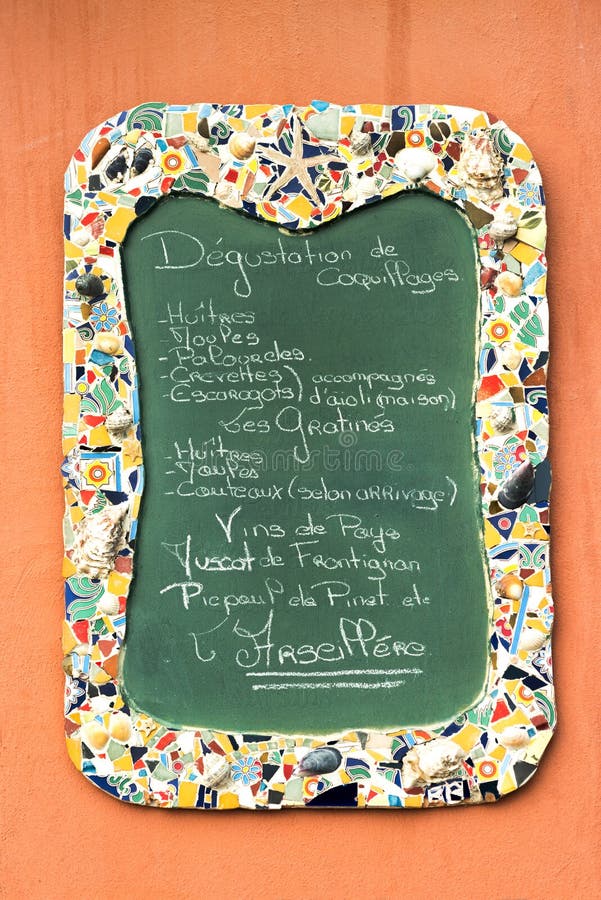 Dégustation de
Coquillages
-Huîtres
-Moules
-Palourdes.
-Crevettes) accompagnés
-Escaragots) d'aïoli (maison)
Les Gratinés
-Huîtres
-Moules
-Couteaux (selon arrivage)
Vins de Pays
Muscat de Frontignan
Picpoul de Pinet etc
L'Arseillère
dreamstime